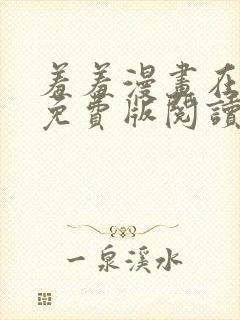 羞羞漫畫在
免費版閱讀
一泉溪水